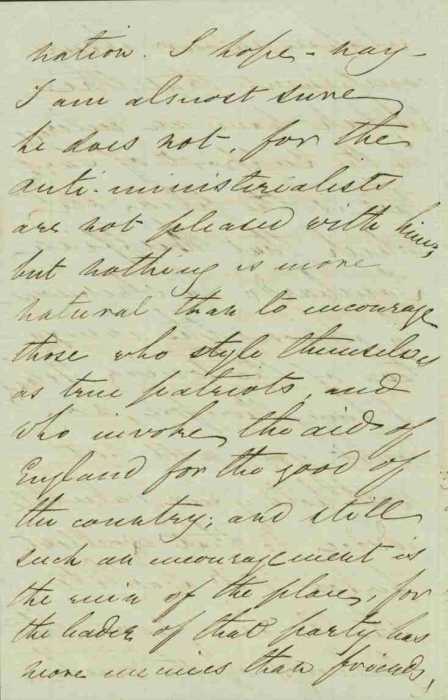 nation. I hope - nay -
I am almost sure
he does not, for the
anti-ministerialists
are not pleased with him,
but nothing is more
natural than to encourage
those who style themselves
as true patriots, and
who invoke the aid of
England for the good of
the country; and still
such an encouragement is
the ruin of the place, for
the leader of that party has
more enemies than friends,